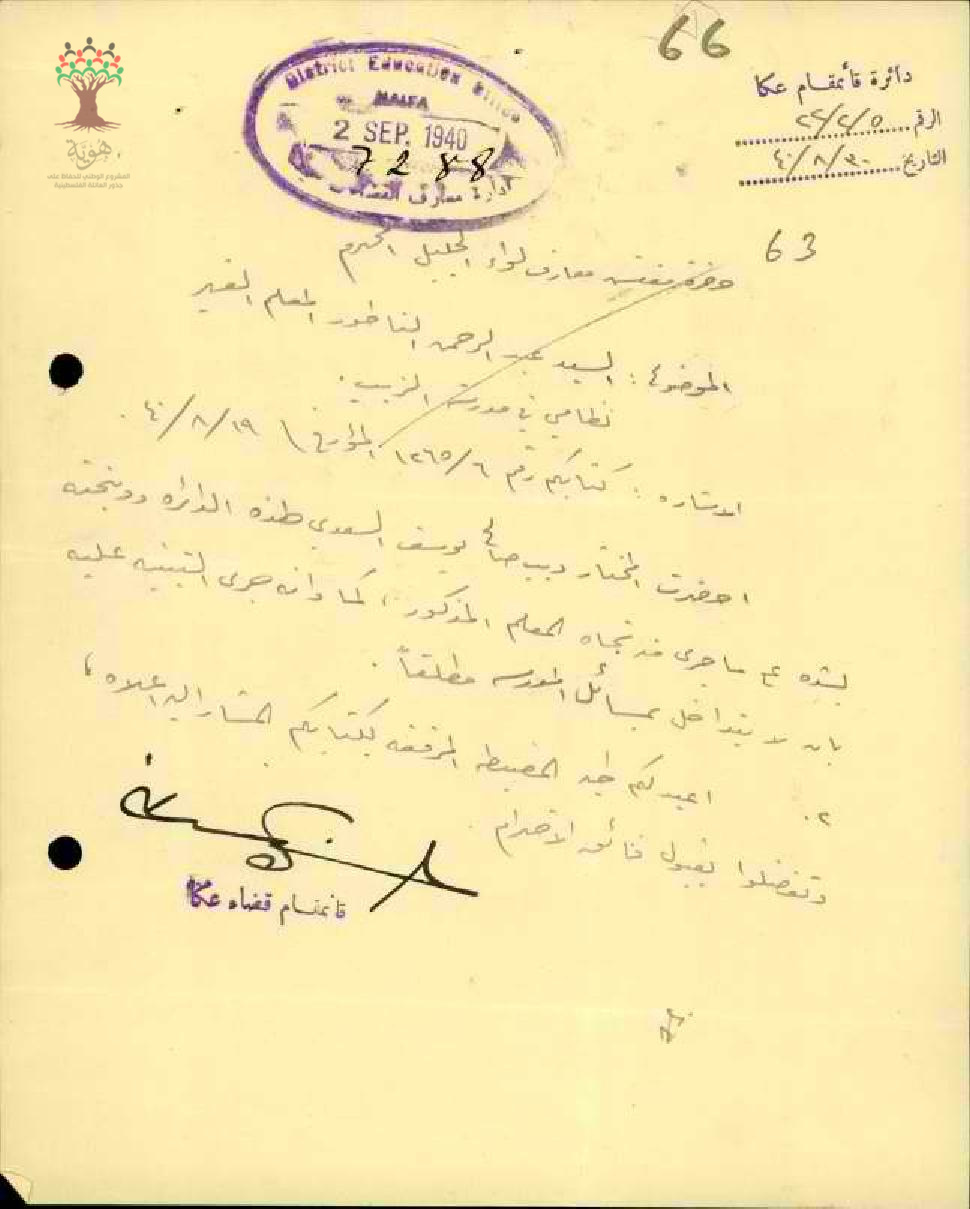 66
دائرة قائمقام عكا
الرقم ٢٤/٢/٥
التاريخ ٤٠/٨/٣٠
District Education Office
HAIFA
2 SEP. 1940
7288
ادارة معارف القضاء
هوية
المشروع الوطني للحفاظ على
جذور العائلة الفلسطينية
63
حضرة مفتش معارف لواء الجليل المحترم
الموضوع : السيد عبد الرحمن الناطور المعلم الغير
نظامي في مدرسة الزيب .
الاشارة : كتابكم رقم ١٢٦٥/٦ المؤرخ ٤٠/٨/١٩ .
احضرت المختار ديب صالح يوسف السعدي لهذه الدائرة ووبخته
بشدة على ما جرى منه تجاه المعلم المذكور ، كما وانه جرى التنبيه عليه
بان لا يتداخل بمسائل المدرسه مطلقاً .
٢. اعيد لكم طيه المضبطه المرفقه بكتابكم المشار اليه اعلاه ،
وتفضلوا بقبول فائق الاحترام .
قائمقام قضاء عكا